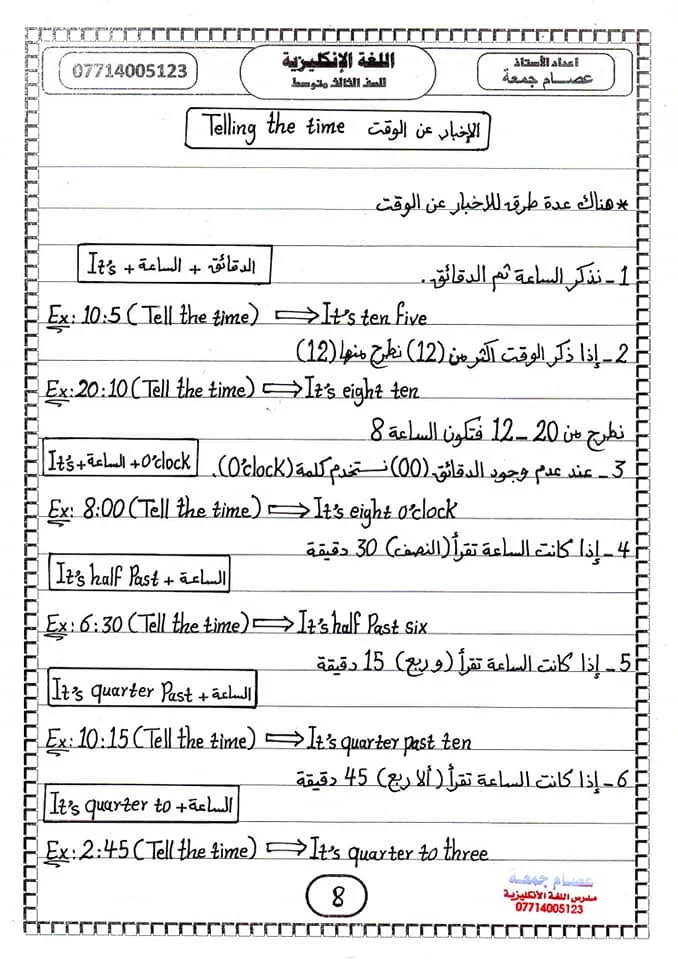 اعداد الأستاذ
عصام جمعة
اللغة الإنكليزية
للصف الثالث متوسط
07714005123
Telling the time الإخبار عن الوقت
*هناك عدة طرق للاخبار عن الوقت
1- نذكر الساعة ثم الدقائق.
It's + الساعة + الدقائق
Ex: 10:5 (Tell the time) ⇒ It's ten five
2- إذا ذكر الوقت اكثر من (12) نطرح منها (12)
Ex: 20:10 (Tell the time) ⇒ It's eight ten
نطرح من 20 - 12 فتكون الساعة 8
3- عند عدم وجود الدقائق (00) نستخدم كلمة (O'clock).
It's + الساعة + O'clock
Ex: 8:00 (Tell the time) ⇒ It's eight o'clock
4- إذا كانت الساعة تقرأ (النصف) 30 دقيقة
It's half Past + الساعة
Ex: 6:30 (Tell the time) ⇒ It's half Past six
5- إذا كانت الساعة تقرأ (وربع) 15 دقيقة
It's quarter Past + الساعة
Ex: 10:15 (Tell the time) ⇒ It's quarter past ten
6- إذا كانت الساعة تقرأ (ألا ربع) 45 دقيقة
It's quarter to + الساعة
Ex: 2:45 (Tell the time) ⇒ It's quarter to three
8
عصام جمعة
مدرس اللغة الانكليزية
07714005123